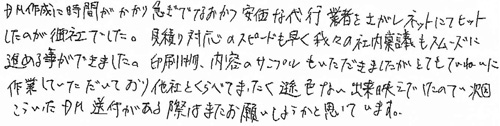 DM作成に時間がかかり急ぎでなおかつ安価な代行業者をさがしネットにてヒット
したのが御社でした。見積り対応のスピードも早く我々の社内稟議もスムーズに
進める事ができました。印刷物、内容のサンプルもいただきましたがとてもていねいに
作業していただいており他社とくらべてまったく遜色ない出来映えでしたので次回
こういったDM送付がある際はまたお願いしようかと思ています。